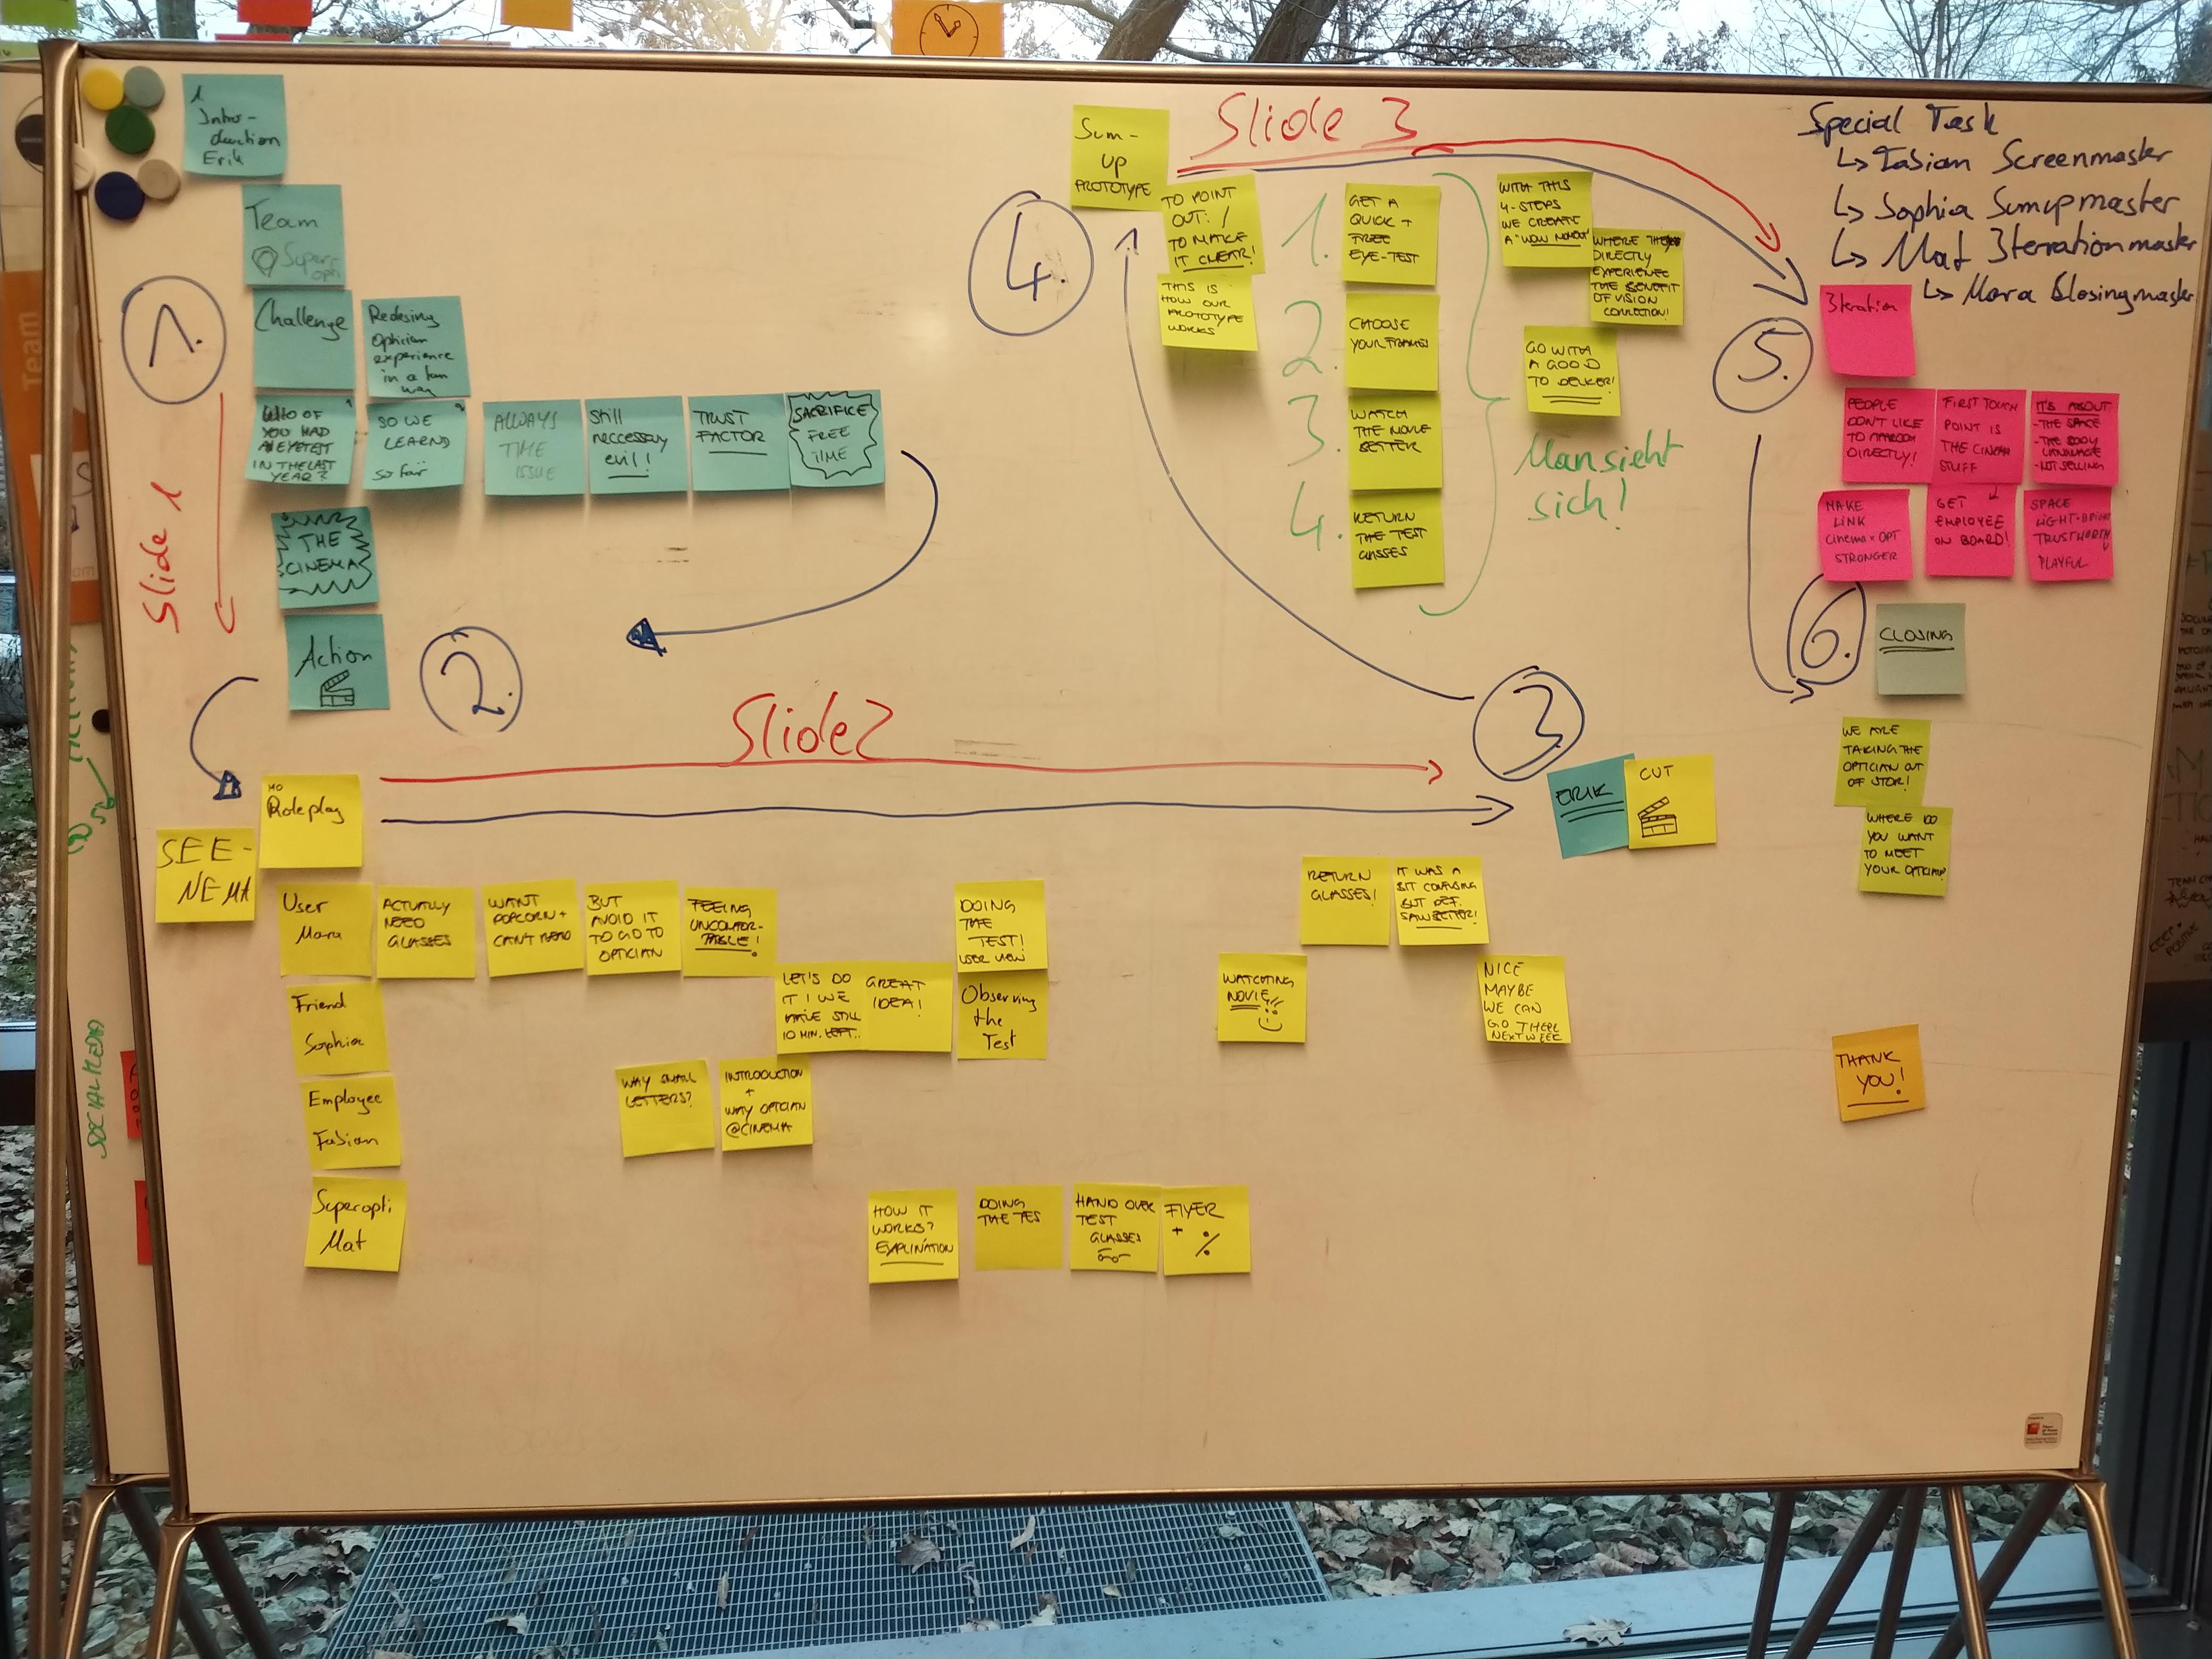 1
Intro-
duction
Erik
Team
Super-
opti
1.
Slide 1
Challenge
Redesing
Optician
experience
in a fun
way
WHO OF
YOU HAD
AN EYETEST
IN THE LAST
YEAR?
SO WE
LEARND
so fair
ALLWAYS
TIME
ISSUE
Still
neccessary
evil!
TRUST
FACTOR
SACRIFICE
FREE
TIME
THE
CINEMA
Action
2.
Slide 2
Roleplay
SEE-
NEMA
User
Mara
ACTUALLY
NEED
GLASSES
WANT
POPCORN +
CANT READ
BUT
AVOID IT
TO GO TO
OPTICIAN
FEELING
UNCOMFOR-
TABLE!
LET'S DO
IT! WE
HAVE STILL
10 MIN. LEFT..
GREAT
IDEA!
DOING
THE
TEST!
USER VIEW
Observing
the
Test
Friend
Sophia
Employee
Fabian
WHY SMALL
LETTERS?
INTRODUCTION
+
WHY OPTICIAN
@CINEMA
Superopti
Mat
HOW IT
WORKS?
EXPLINATION
DOING
THE TES
HAND OVER
TEST
GLASSES
FLYER
+ %
WATCHING
MOVIE
RETURN
GLASSES!
IT WAS A
BIT CONFUSING
BUT DEF.
SAW BETTER!
NICE
MAYBE
WE CAN
GO THERE
NEXT WEEK
3
ERIK
CUT
4.
Sum-
up
PROTOTYPE
Slide 3
TO POINT
OUT: /
TO MAKE
IT CLEAR!
THIS IS
HOW OUR
PROTOTYPE
WORKS
1.
GET A
QUICK +
FREE
EYE-TEST
2.
CHOOSE
YOUR FRAMES
3.
WATCH
THE MOVIE
BETTER
4.
RETURN
THE TEST
GLASSES
WITH THIS
4-STEPS
WE CREATE
A "WOW MOMENT"
WHERE THEY
DIRECTLY
EXPERIENCE
THE BENEFIT
OF VISION
CORRECTION!
GO WITH
A GOOD
TO DELIVER!
Man sieht
sich!
Special Task
Fabian Screenmaster
Sophia Sumupmaster
Mat Iterrationmaster
Mara Closingmaster
5.
Iteration
PEOPLE
DON'T LIKE
TO APPROACH
DIRECTLY!
FIRST TOUCH
POINT IS
THE CINEMA
STUFF
IT'S ABOUT
- THE SPACE
- THE BODY
LANGUAGE
- NOT SELLING
MAKE
LINK
cinema x OPT
STRONGER
GET
EMPLOYEE
ON BOARD!
SPACE
LIGHT + BRIGHT
TRUSTWORTHY
PLAYFUL
6.
CLOSING
WE ARE
TAKING THE
OPTICIAN OUT
OF STOR!
WHERE DO
YOU WANT
TO MEET
YOUR OPTICIAN?
THANK
YOU!
SOCIAL MEDIA
Team